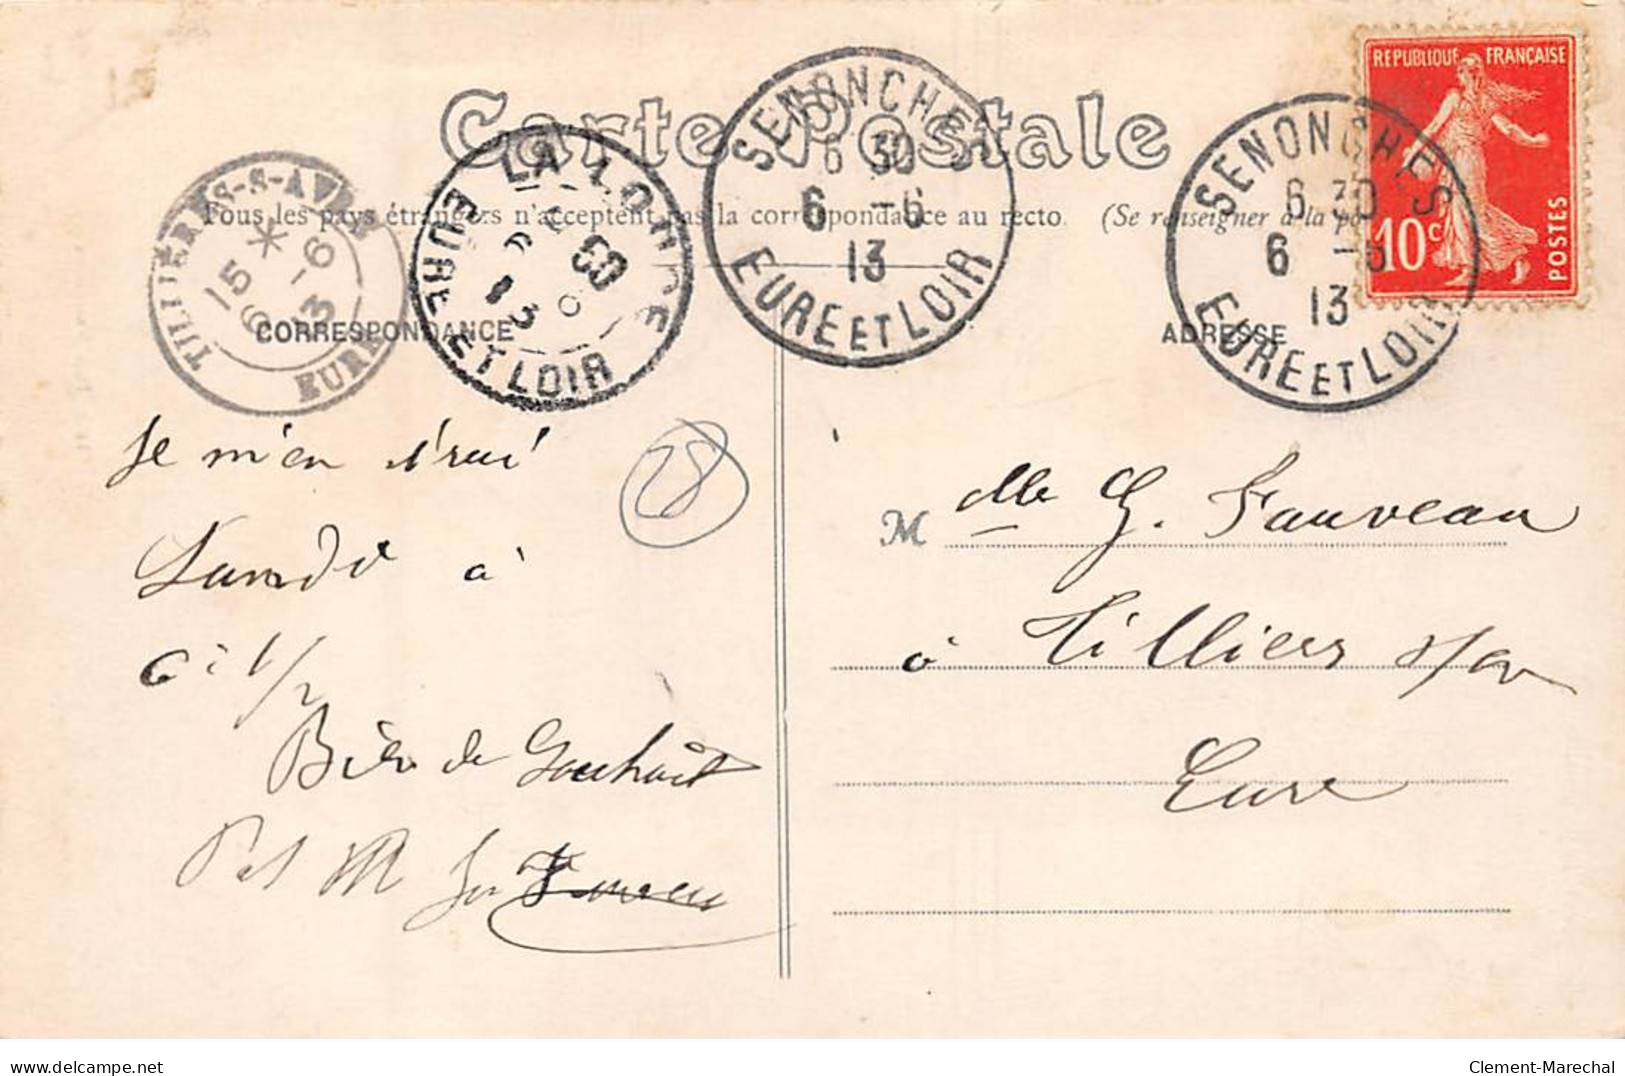 Carte Postale
Tous les pays étrangers n'acceptent pas la correspondance au recto. (Se renseigner à la po
CORRESPONDANCE
ADRESSE
TILLIÈRES-S-AVRE
15 *
6 -6
13
EURE
LA LOUPE
50
6
13
EURE ET LOIR
SENONCHES
6 30
6 -6
13
EURE ET LOIR
SENONCHES
6 30
6 -6
13
EURE ET LOIR
REPUBLIQUE FRANÇAISE
10c
POSTES
28
Je m'en
à
6 1/2
de
M
M
elle G. Fauveau
à Tilliers s/av
Eure
delcampe.net
Clement-Marechal